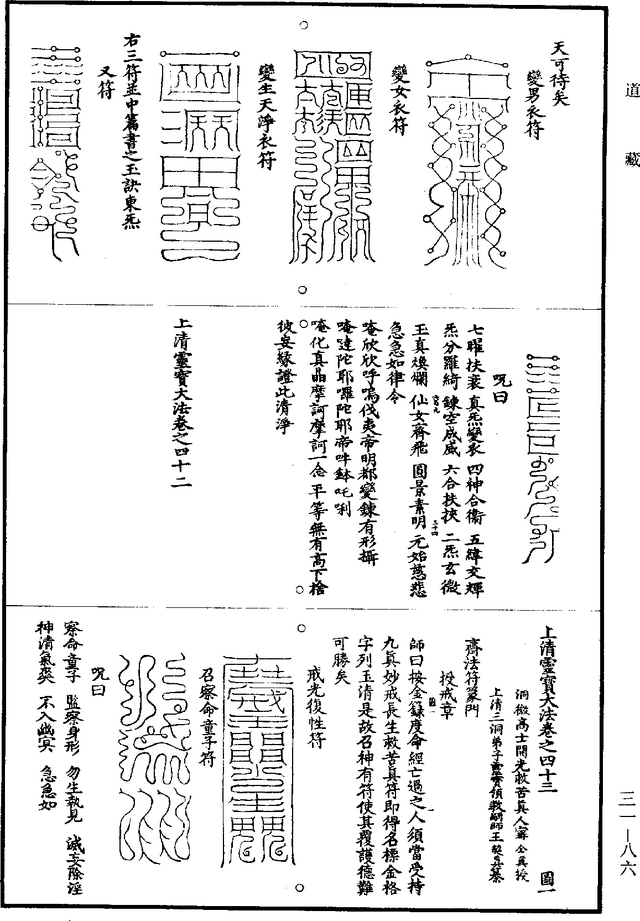 道藏
天可待矣
變男衣符
變女衣符
變生天淨衣符
右三符並中篇書之玉訣東炁
又符
咒曰
七曜扶衰 真炁變衣 四神合衞 五緯交輝
炁分羅綺 鍊空成威 六合扶挾 二炁玄微
王真煥爛 仙女齊飛 圓景素明 元始慈悲
急急如律令
唵欣欣呼嗚伐夷帝明都變鍊有形攝
唵噠陀耶囉陀耶帝吽鉢吒唎
唵化真晶摩訶摩訶一念平等無有高下捨
彼妄緣證此清淨
上清靈寶大法卷之四十二
上清靈寶大法卷之四十三 圖一
洞微高士開光救苦真人甯全真授
上清三洞弟子靈寶領教嗣師王契真纂
齋法符篆門
授戒章
師曰按金籙度命經亡過之人須當受持
九真妙戒長生救苦真符即得名標金格
字列玉清是故召神有符使其覆護德難
可勝矣
戒光復性符
召察命童子符
咒曰
察命童子 監察身形 勿生執見 滅妄除淫
神清氣爽 不入幽冥 急急如
三一—八六